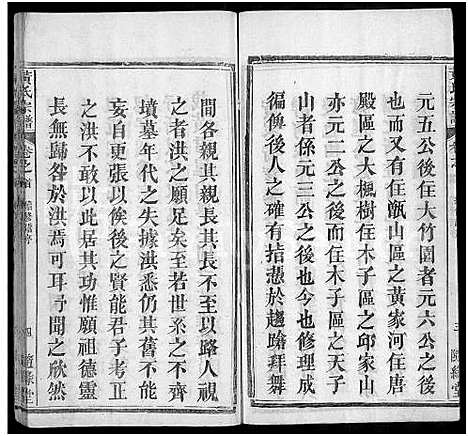 元五公後住大竹園者元六公之後
又有住在甑山區之黃家河住在
殿區之大楓樹住木子區之邱家山
亦元二公之後住木子區之天子
山者係元三公之後也今修理成
徧俾後嗣之有拮憑於趨蹌拜舞
三
間各親其親長其長不至以路人視
之洪之願足矣至若世次之不齊
墳墓年代之失據洪悉仍其舊不能
妄自更張以俟後之賢能君子考正
之洪不敢居其功惟願祖德靈
長無歸咎於洪焉可耳予聞之欣然
黃氏宗譜
卷之首
四